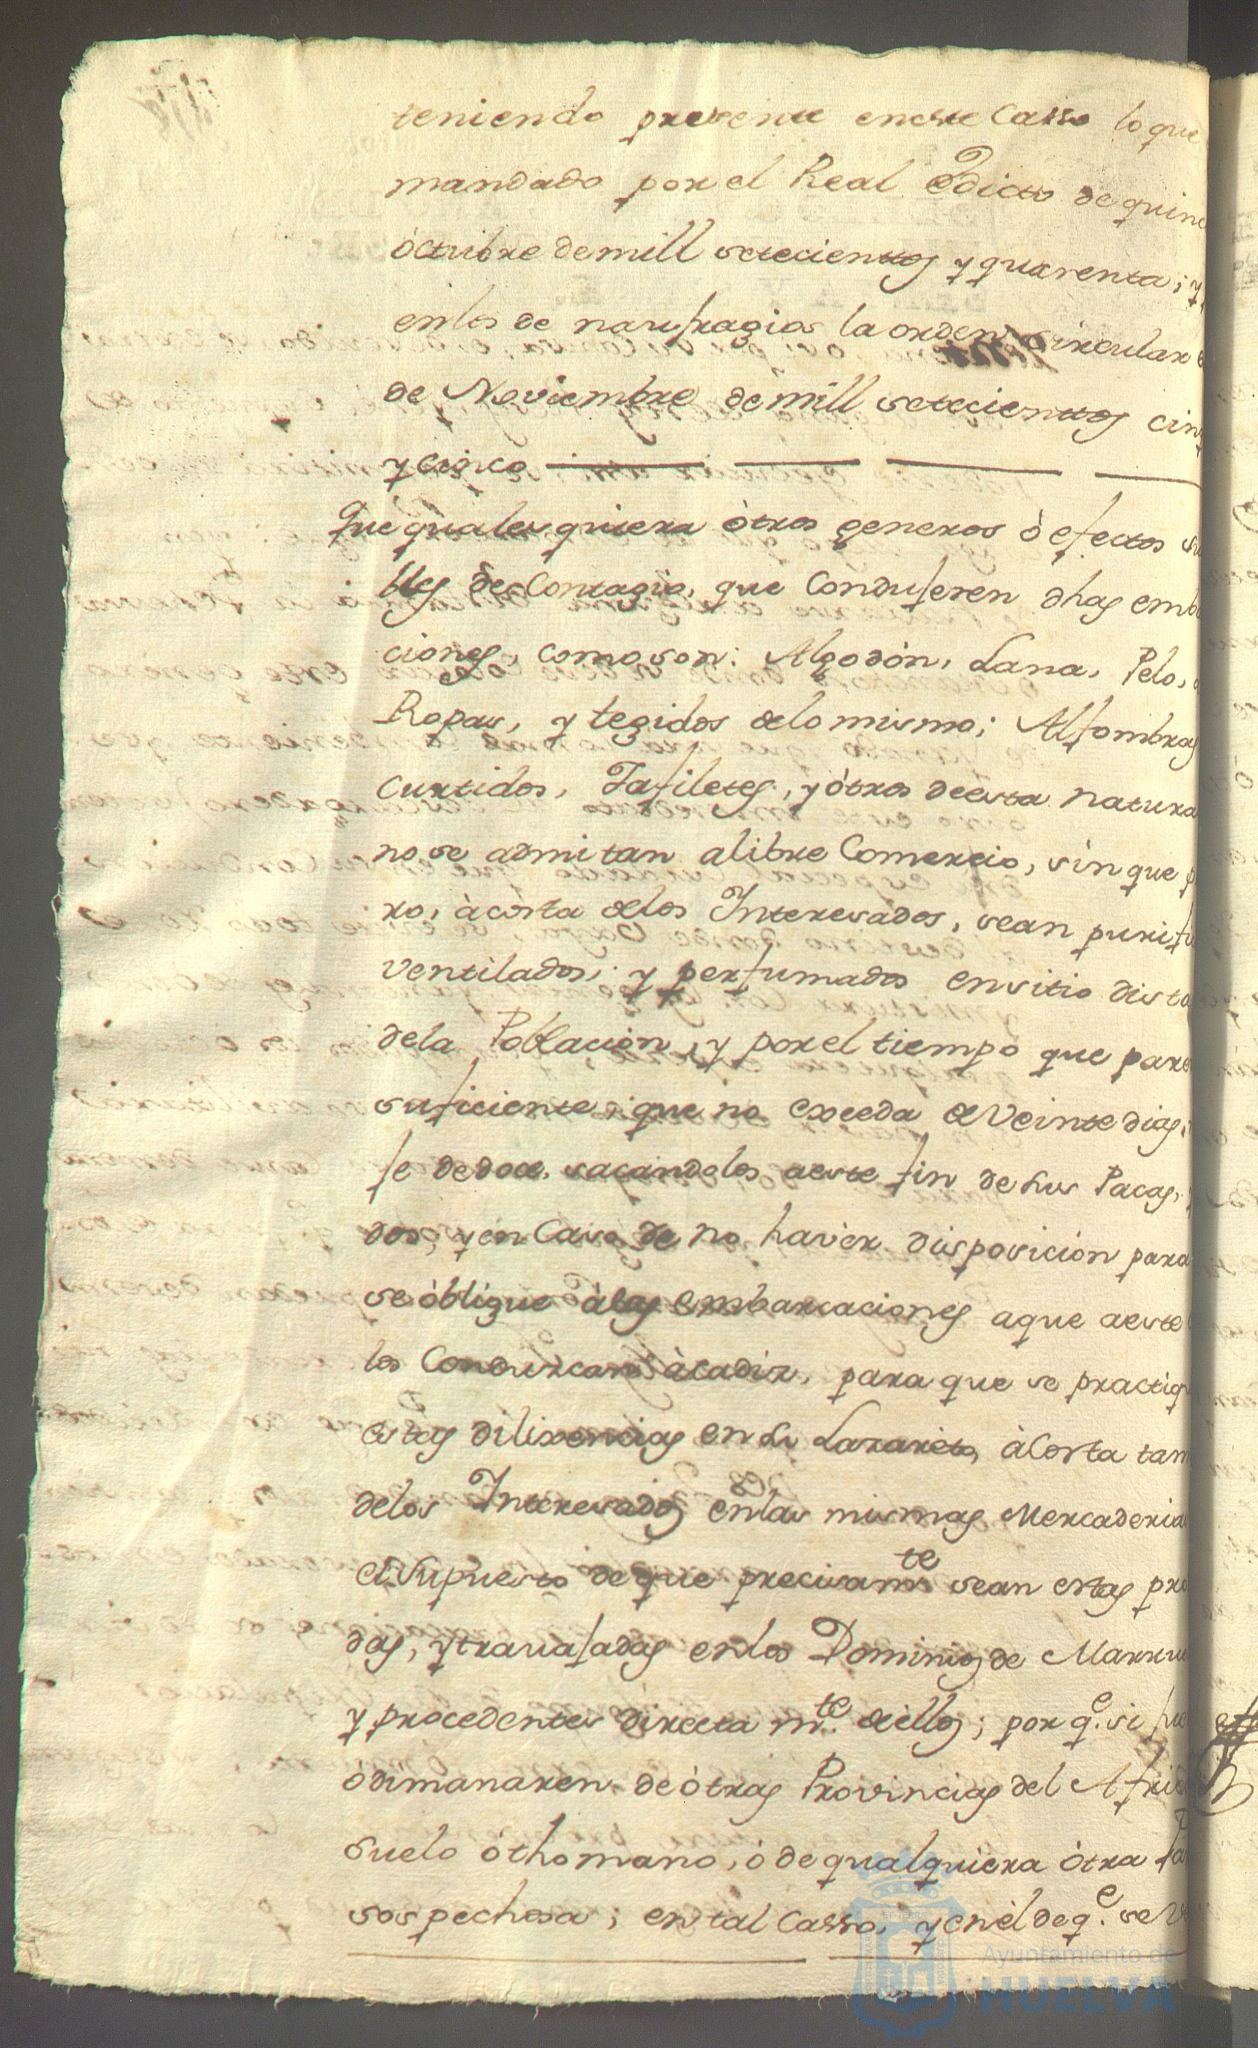 teniendo presente eneste Casso lo que
mandado por el Real Edicto de quin
óctubre demill setecienttos y quarenta; y
enlos de naufragios la orden circular
de Noviembre de mill setecienttos cin
y cinco
Que qualesquiera ótros generos ó efectos su
bles de Contagio, que Condugeren dhas emb
ciones, como son: Algodón, Lana, Pelo,
Ropas, y tegidos delo mismo; Alfombras
Curtidos, Tafiletes, y ótros deesta natura
no se admitan alibre Comercio, sin que p
ro, à costa delos Interesados, sean purifi
ventilados, y perfumados ensitio dista
dela Poblacion, y por el tiempo que pare
suficiente, que no exceda de veinte dias,
fe de doce, sacandolos aeste fin de sus Pacas,
dos, y en Caso de no haver disposición para
se óbligue àlas embarcaciones aque aeste
los Conduzcan àcadiz, para que se practiq
estas dilixencias en su Lazareto, àCosta tam
delos Interesados enlas mismas Mercaderia
el supuesto de que precisamte sean estas pro
das, y travajadas enlos Dominios de Marrue
y procedentes directa mte. de ellos; por qe. si fue
ó dimanaren de ótras Provincias del Afric
suelo óthomano, ó de qualquiera ótra pa
sospechosa; en tal Casso, y en él de qe. se v
Ayuntamiento de
HUELVA